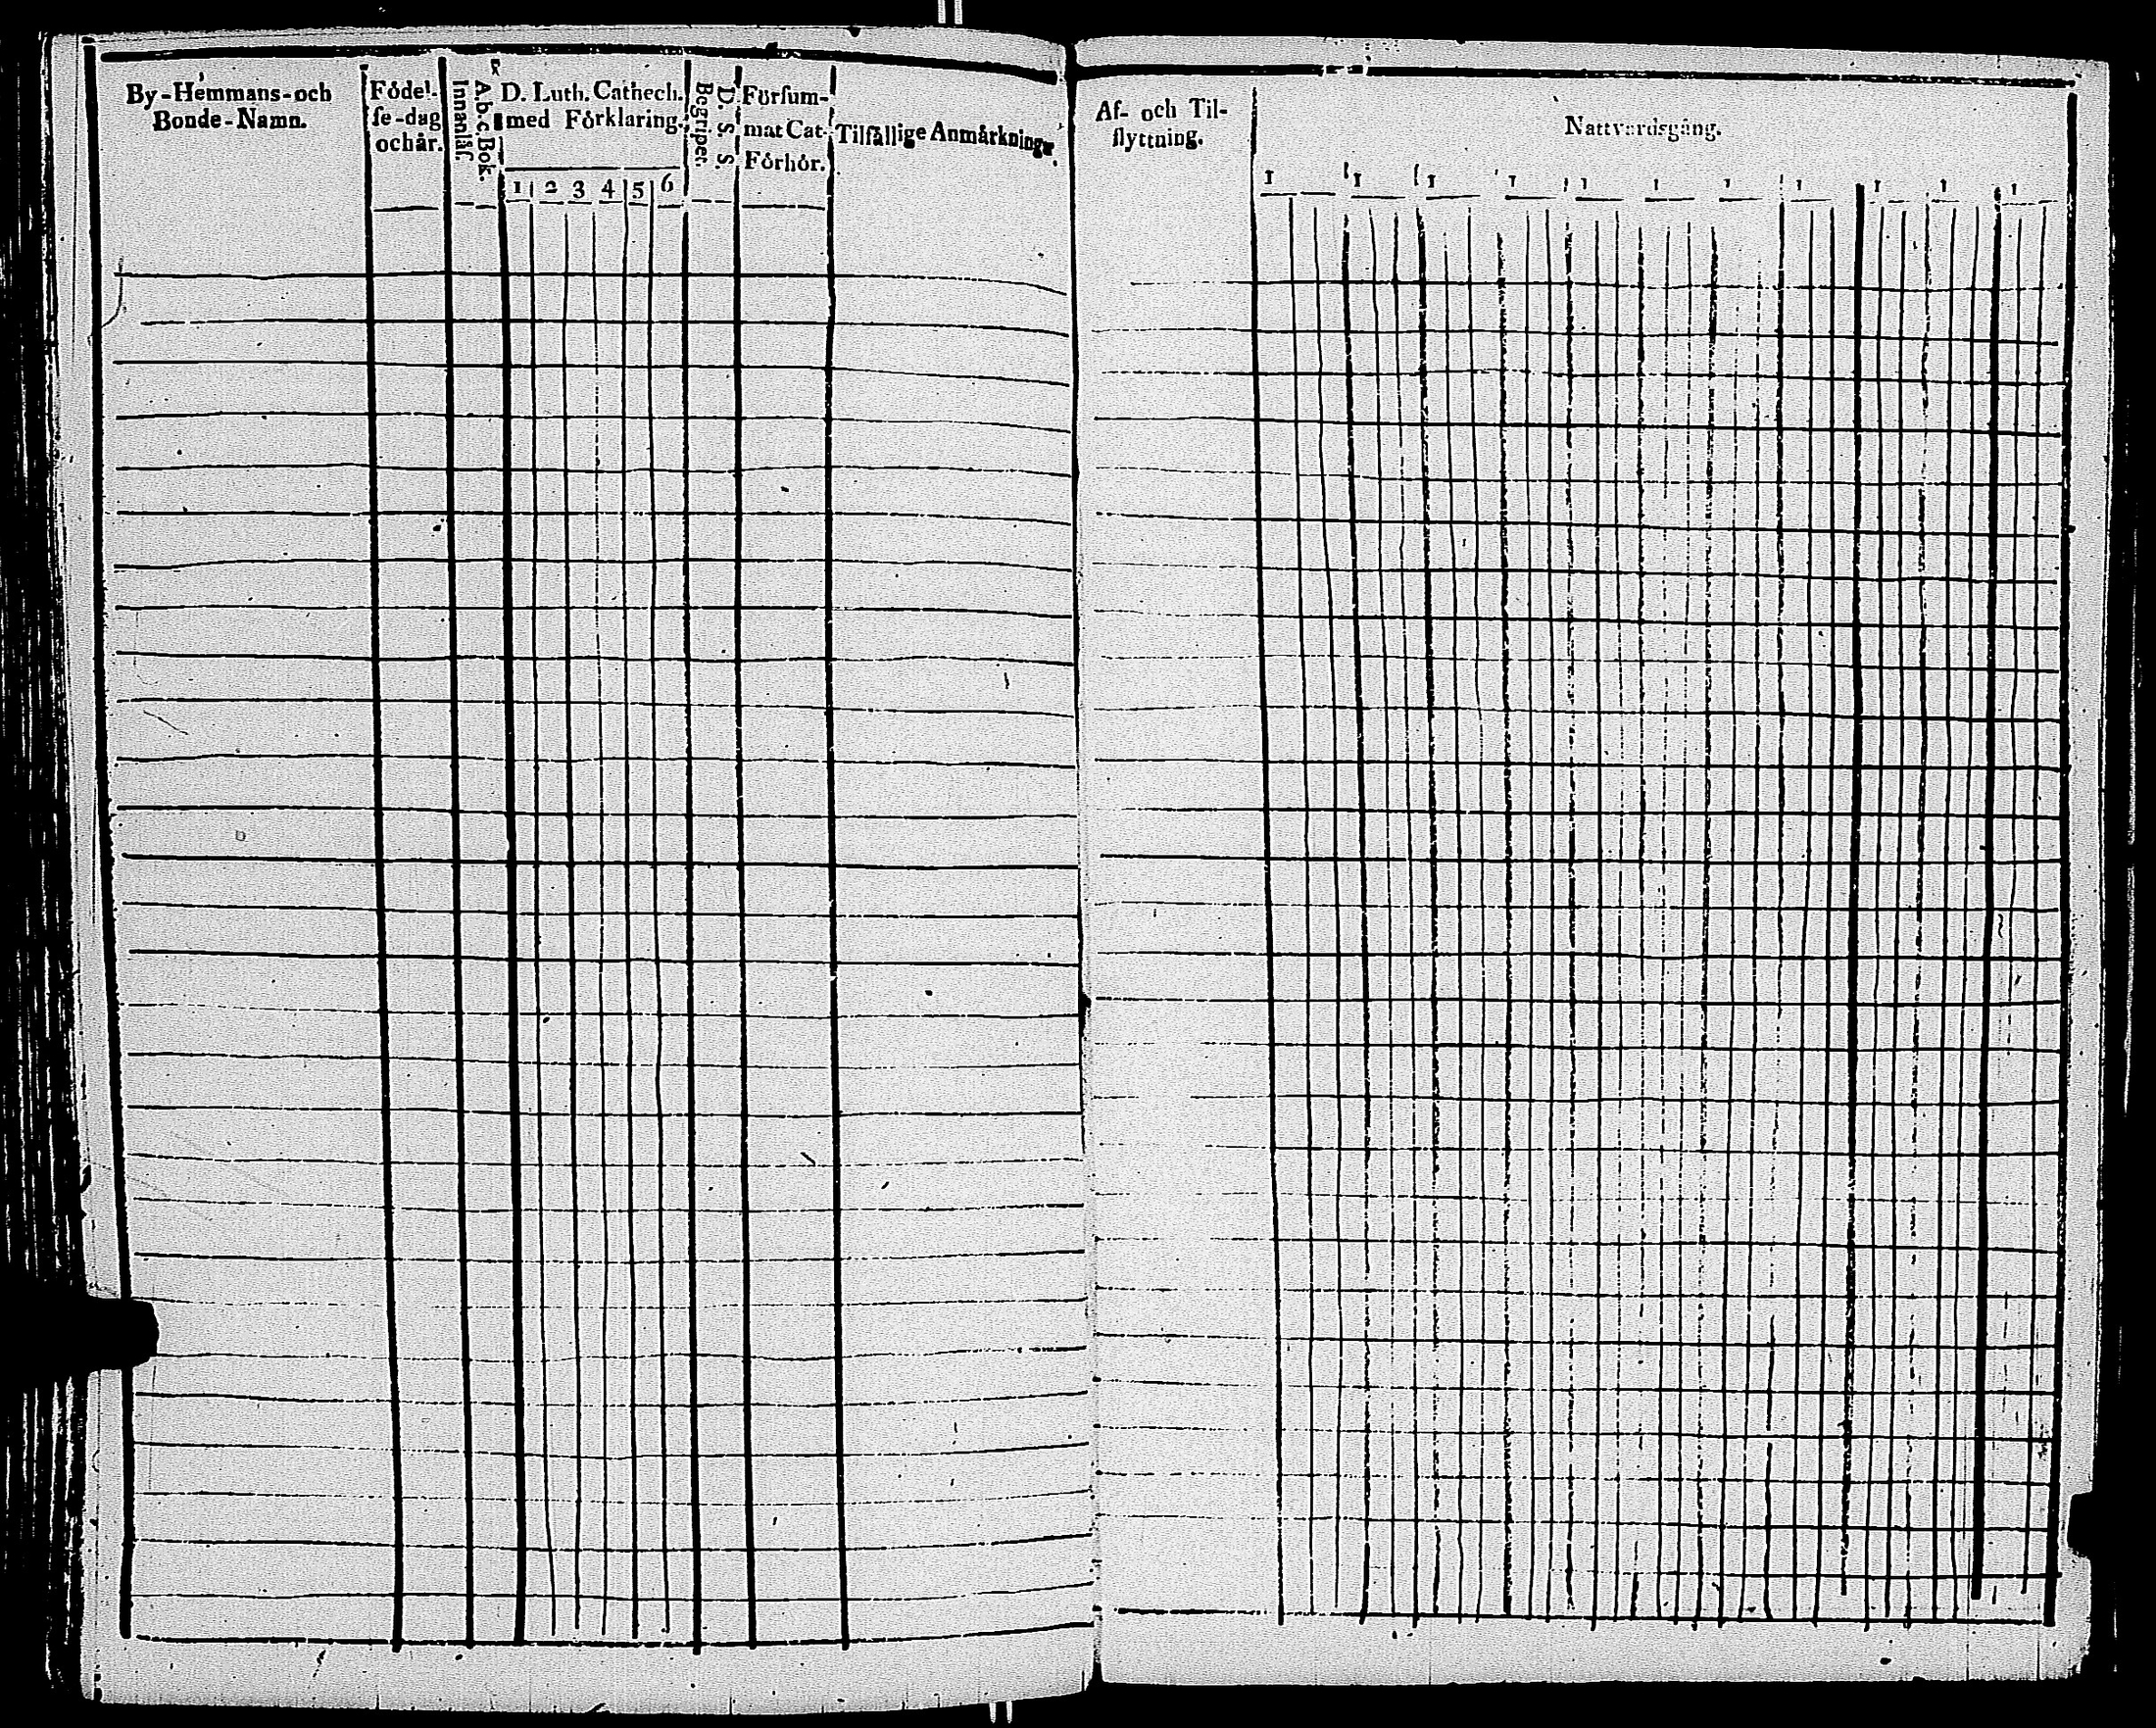 By-Hemmans-och
Bonde-Namn.
Födel-
ſe-dag
och år.
A.b.c.Bok.
Innanläſ.
D. Luth. Cathech.
med Förklaring.
1 2 3 4 5 6
D. S. S.
Begriper.
Förſum-
mat Cat-
Förhör.
Tilfällige Anmärkningr.
Af- och Til-
flyttning.
Nattvardsgång.
1 1 1 1 1 1 1 1 1 1 1